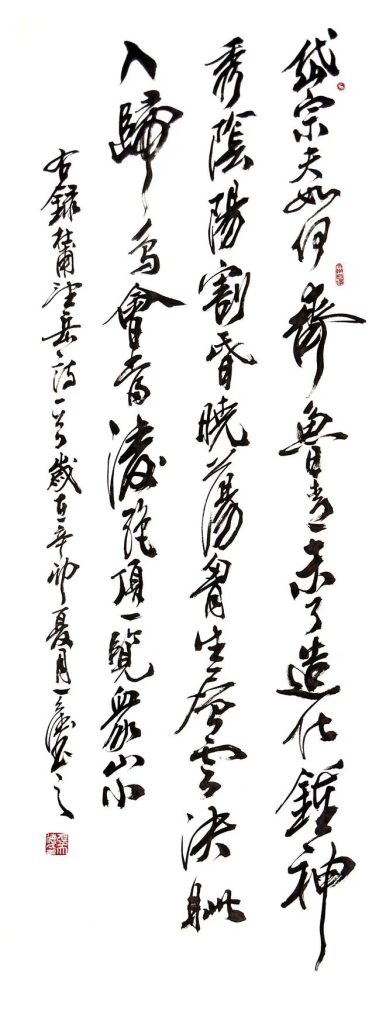 岱宗夫如何齊魯青未了造化鍾神
秀陰陽割昏曉蕩胷生層雲決眦
入歸鳥會當凌絕頂一覽衆山小
右錄杜甫望岳詩一首歲在辛卯夏月一書之